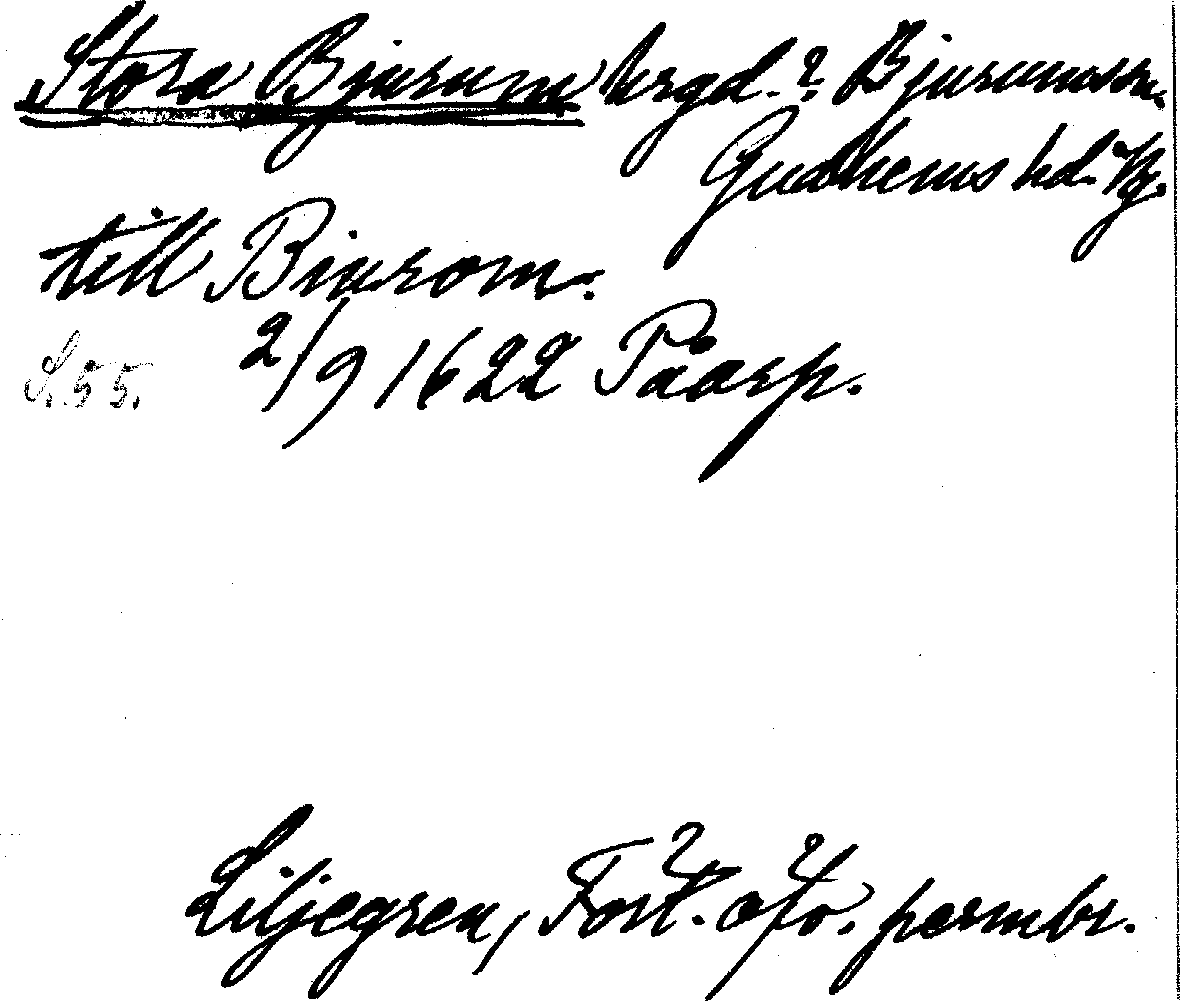 Stora Bjurum hrgd.? Bjurums sn.
Gudhems hd. Vg.
till Biurom.
S. 55. 2/9 1622 Påarp.
Liljegren, Fört. öfv. permbr.